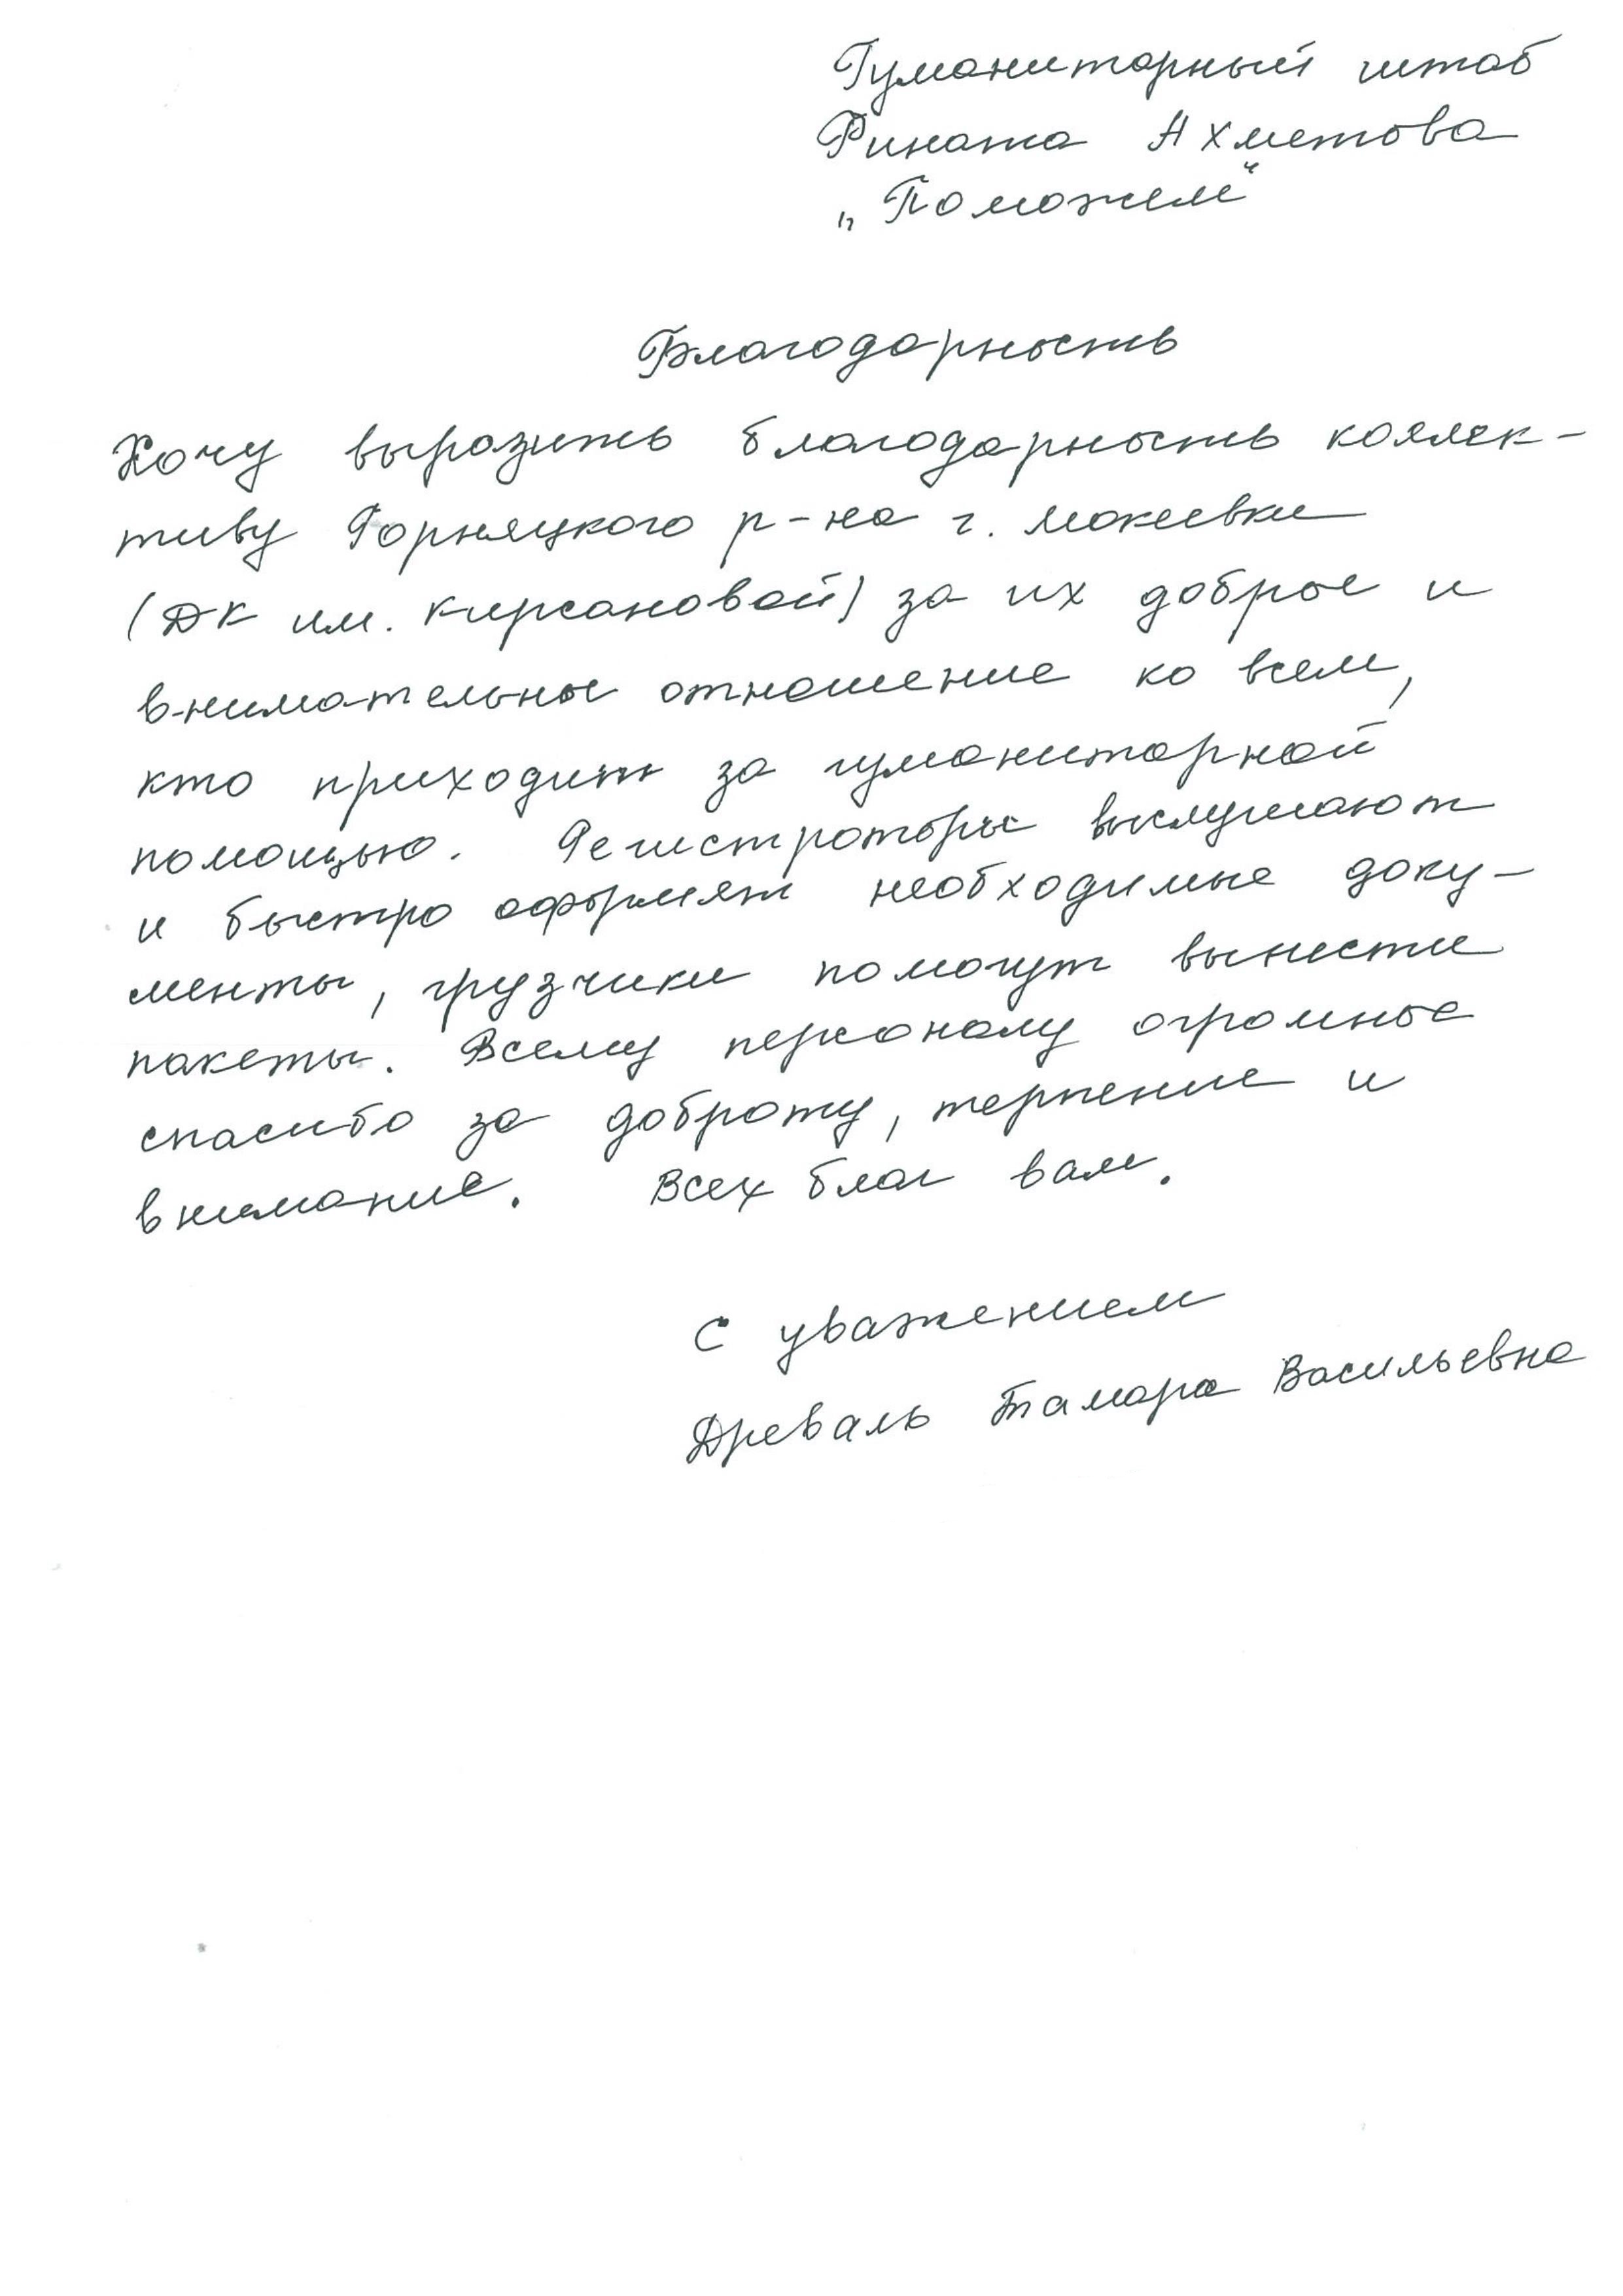 Гуманитарный штаб
Рината Ахметова
„Поможем“
Благодарность
Хочу выразить благодарность коллек-
тиву Горняцкого р-на г. Макеевки
(ДК им. Кирсановой) за их доброе и
внимательное отношение ко всем,
кто приходит за гуманитарной
помощью. Регистраторы выслушают
и быстро оформят необходимые доку-
менты, грузчики помогут вынести
пакеты. Всему персоналу огромное
спасибо за доброту, терпение и
внимание. Всех благ вам.
С уважением
Древаль Тамара Васильевна